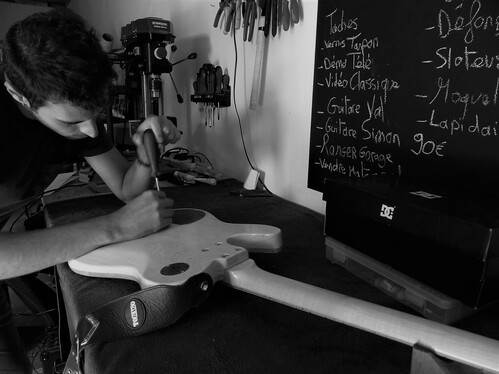 Taches
- Vernis Tampon
- Démo Télé
- Vidéo Classique
- Guitare Val
- Guitare Simon
- Ranger Garage
- Vendre
- Défon
- Stateu
- Maque
- Lapidai
90€
DC